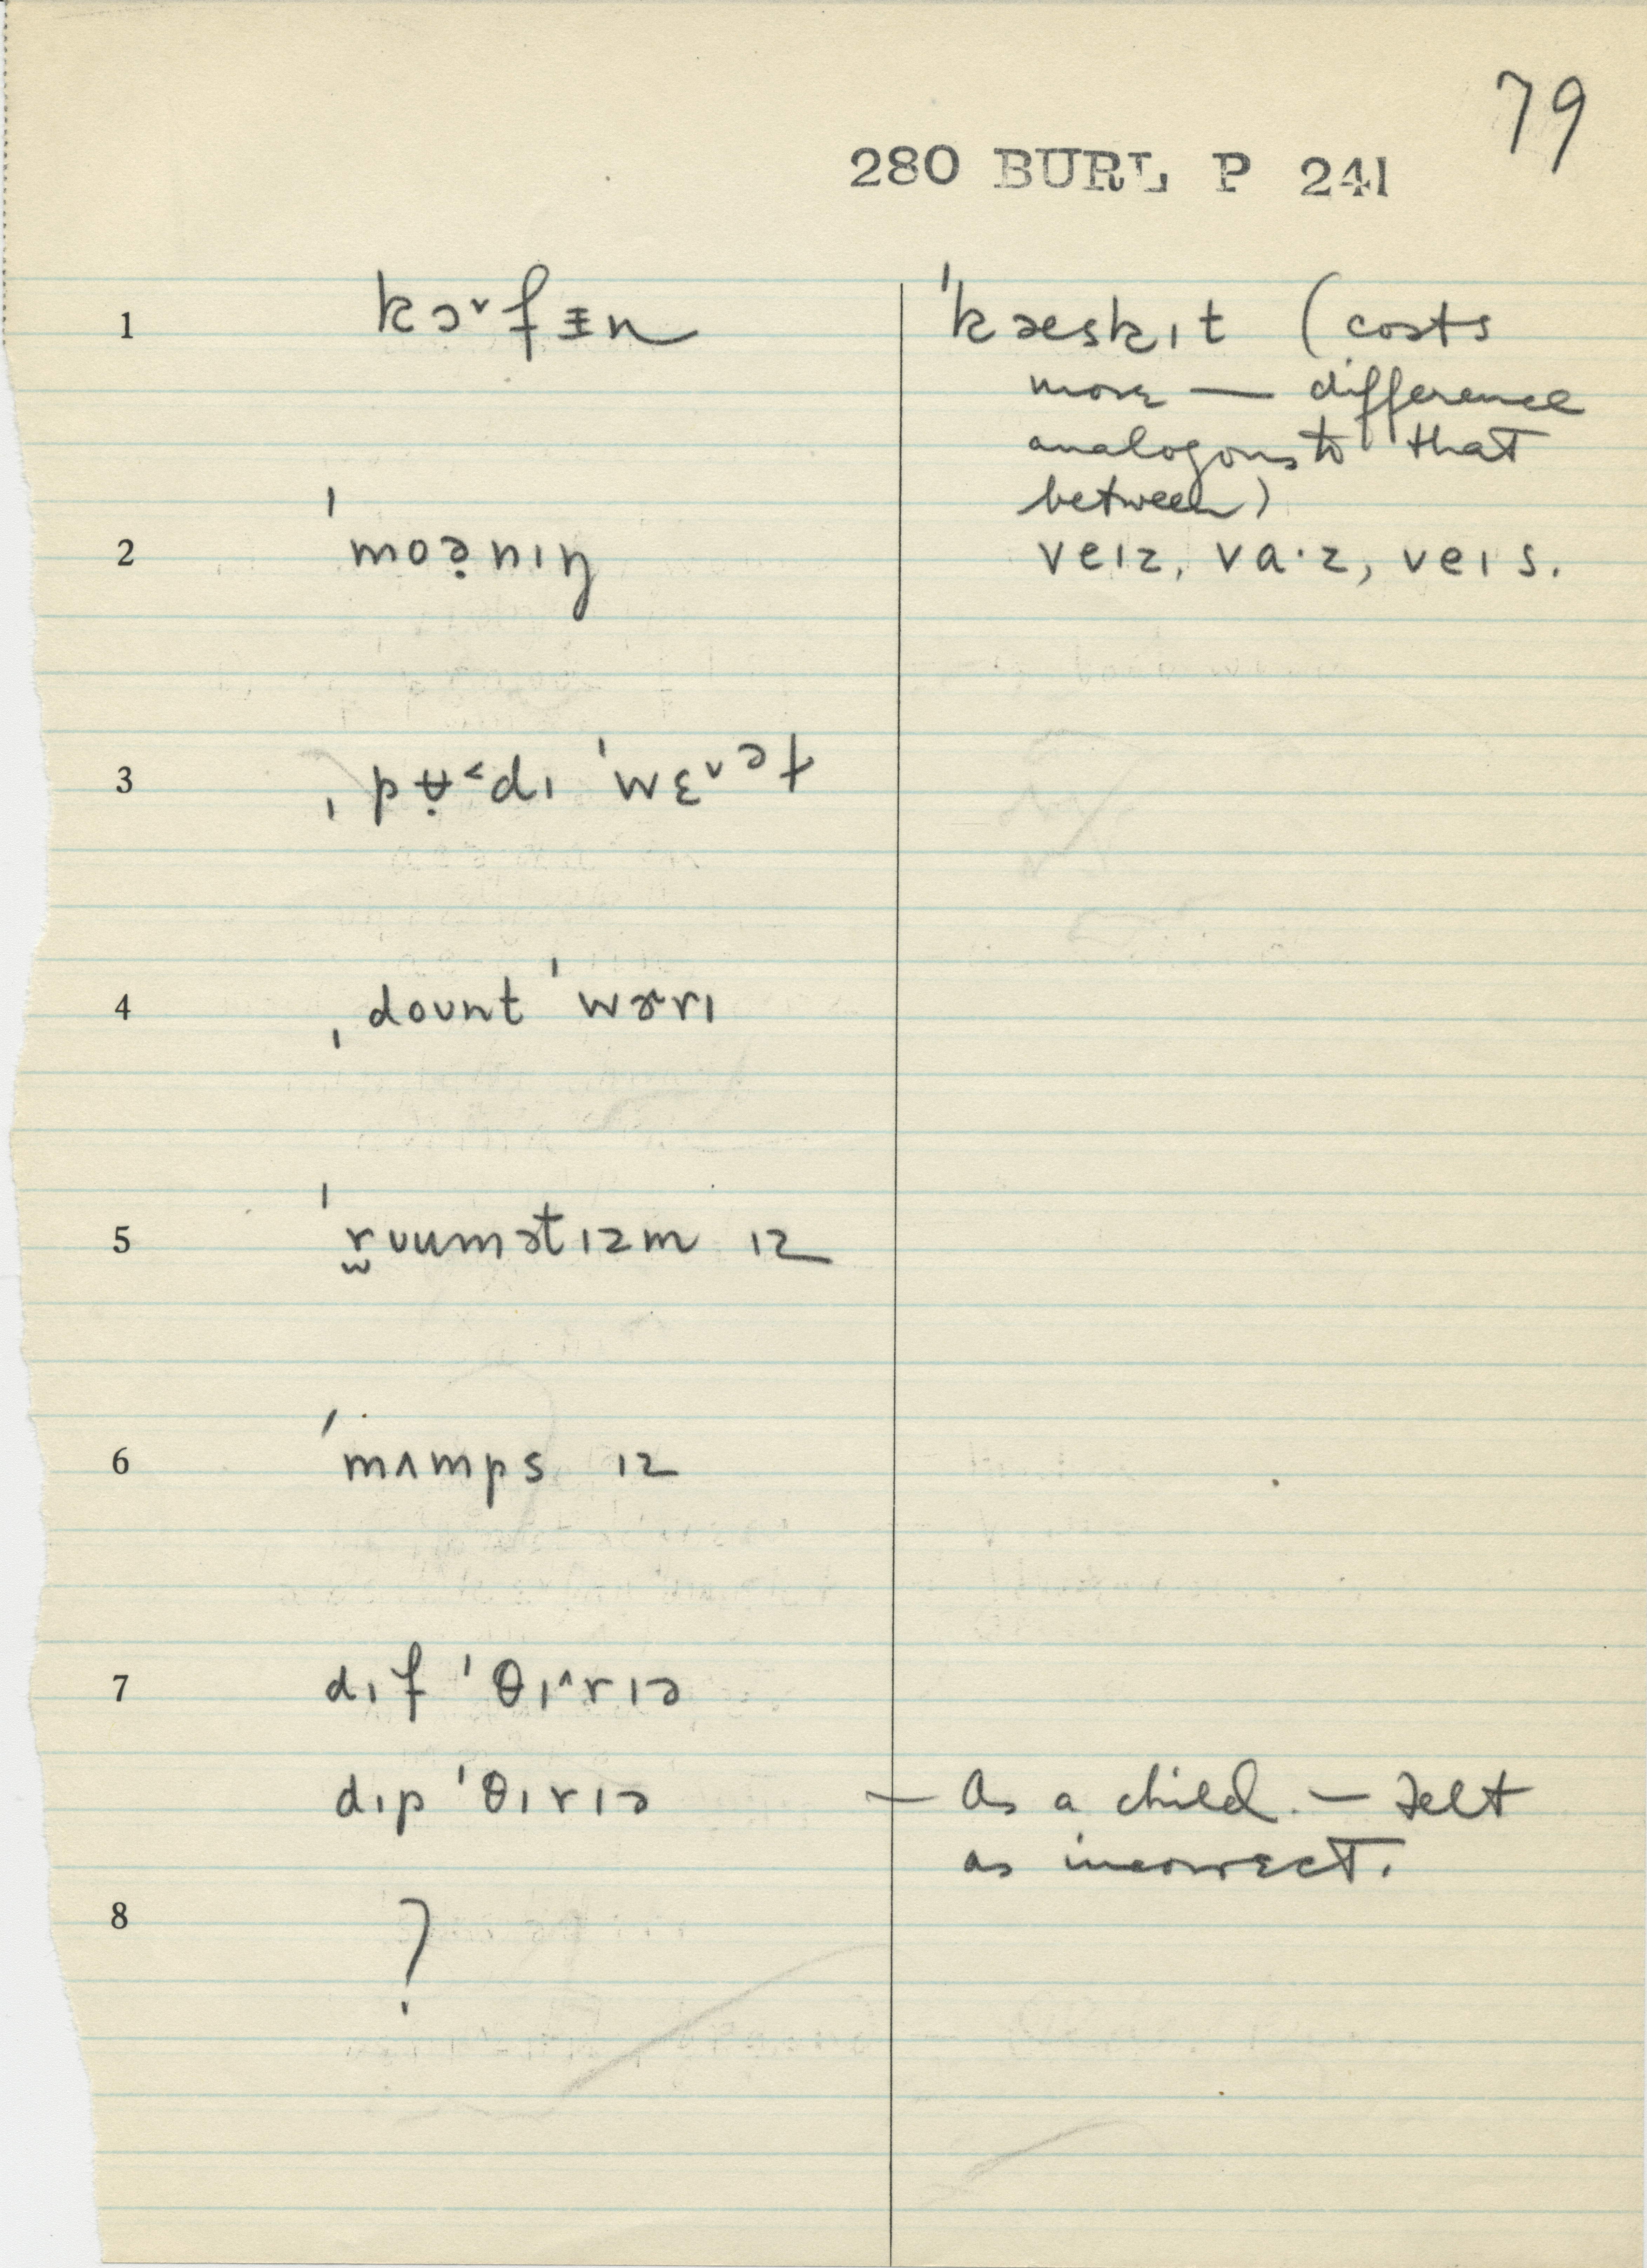 79
280 BURL P 241
1 kɔ˅fɪ̵n ˈkæskɪt (costs
more — difference
analogous to that
between)
2 ˈmoə̣nɪŋ veɪz, va·z, veɪs.
3
4 ˌdoʊnt ˈwɚrɪ
5 ˈr̫ʊumətɪzm ɪz
6 ˈmʌmps ɪz
7 dɪf ˈθɪ˄rɪə
dɪp ˈθɪrɪə — As a child. — Felt
as incorrect.
8 ?